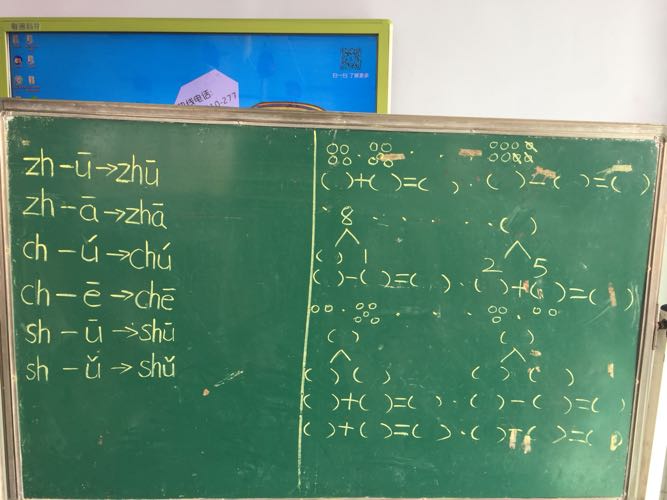 扫一扫 了解更多
热线电话:
zh-ū→zhū
zh-ā→zhā
ch-ú→chú
ch-ē→chē
sh-ū→shū
sh-ǔ→shǔ
( )+( )=( ) . ( )-( )=( )
8 . . . . . . ( )
( ) 1 2 5
( )-( )=( ) . ( )+( )=( )
( ) ( )
( ) ( ) ( ) ( )
( )+( )=( ) . ( )-( )=( )
( )+( )=( ) . ( )-( )=( )